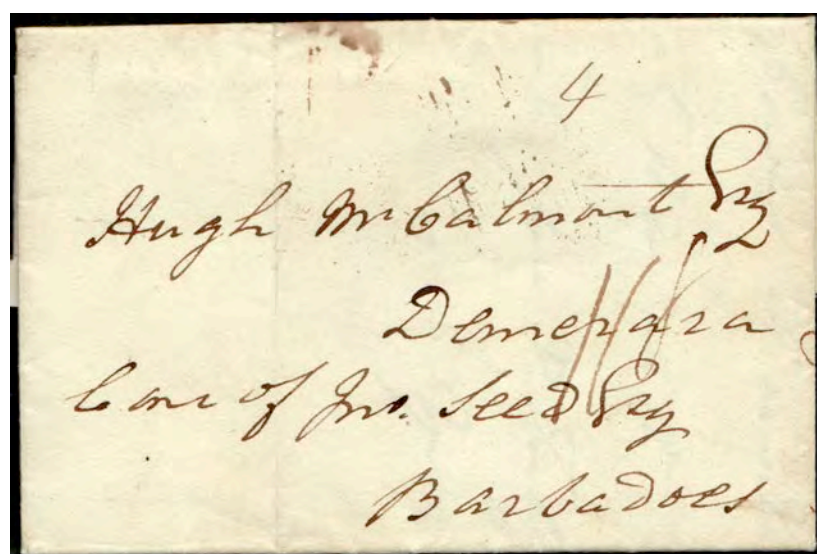 4
Hugh McCalmont Esq
Demerara
Care of Jno. Seed Esq
Barbadoes